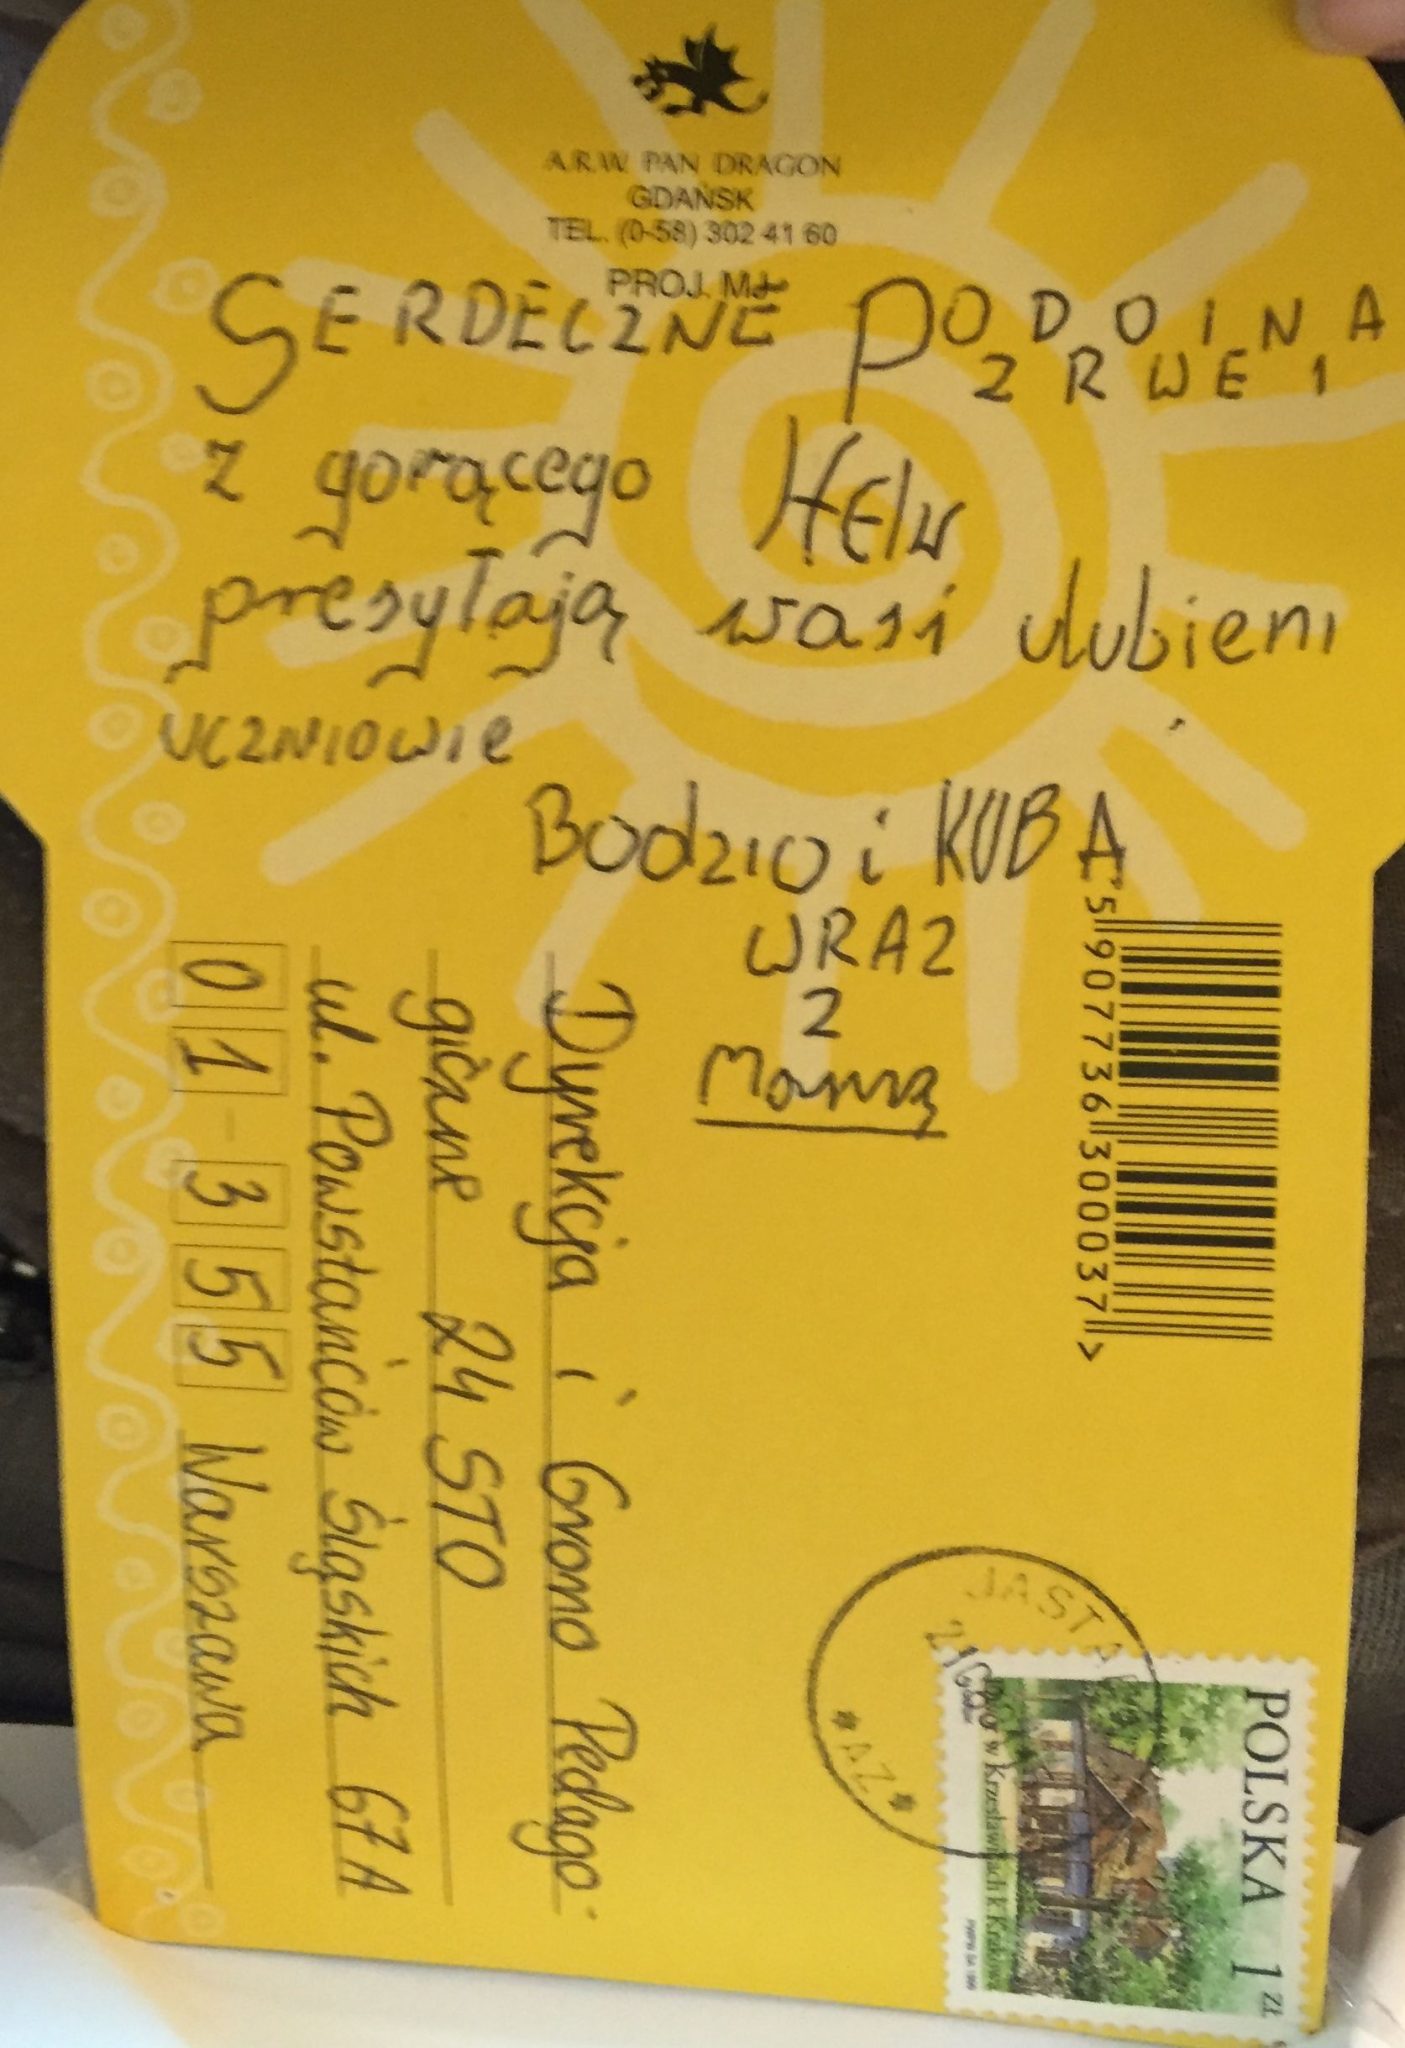 A.R.W. PAN DRAGON
GDAŃSK
TEL. (0-58) 302 41 60
PROJ. MŁ
SERDECZNE PODOINA
ZRWENI
z gorącego HElu
presyłają wasi ulubieni
uczniowie
Bodzio i KUBA
WRAZ
Z
Mamą
5 907736 300037 >
Dyrekcja i Grono Pedago-
giczne 24 STO
ul. Powstańców Śląskich 67A
01-355 Warszawa
POLSKA 1 ZŁ
w Krzesławicach k. Krakowa
*AZ*